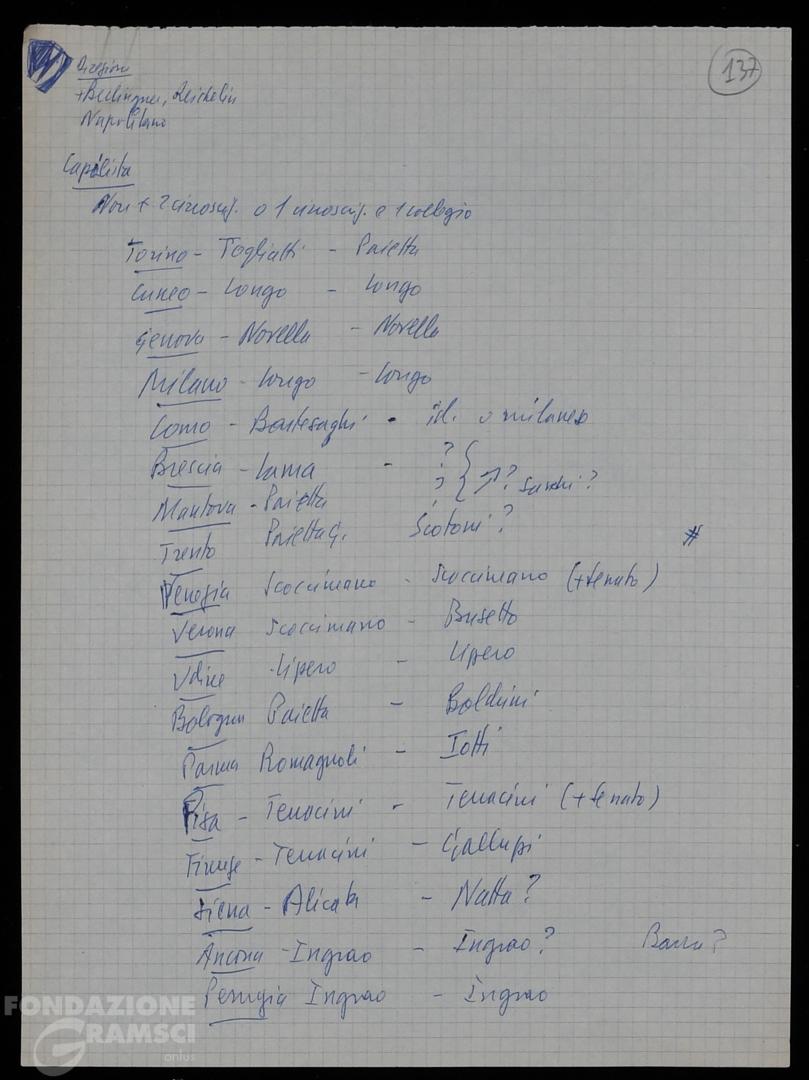 137
Direzione
+ Berlinguer, Reichlin
Napolitano
Capilista
Non + 2 circoscriz. o 1 circoscriz. e 1 collegio
Torino - Togliatti - Paietta
Cuneo - Longo - Longo
Genova - Novella - Novella
Milano - Longo - Longo
Como - Bartesaghi - id. o milanese
Brescia - Lama - ?
Mantova - Paietta ? } ? Sandri ?
Trento Paietta G. Scotoni ?
#
Venezia Scoccimarro - Scoccimarro (+ senato)
Verona Scoccimarro - Busetto
Udine - Lipero - Lipero
Bologna Paietta - Boldrini
Parma Romagnoli - Iotti
Pisa - Terracini - Terracini (+ senato)
Firenze - Terracini - Galluzzi
Siena - Alicata - Natta ?
Ancona - Ingrao - Ingrao ? Barca ?
Perugia Ingrao - Ingrao
FONDAZIONE
GRAMSCI
onlus